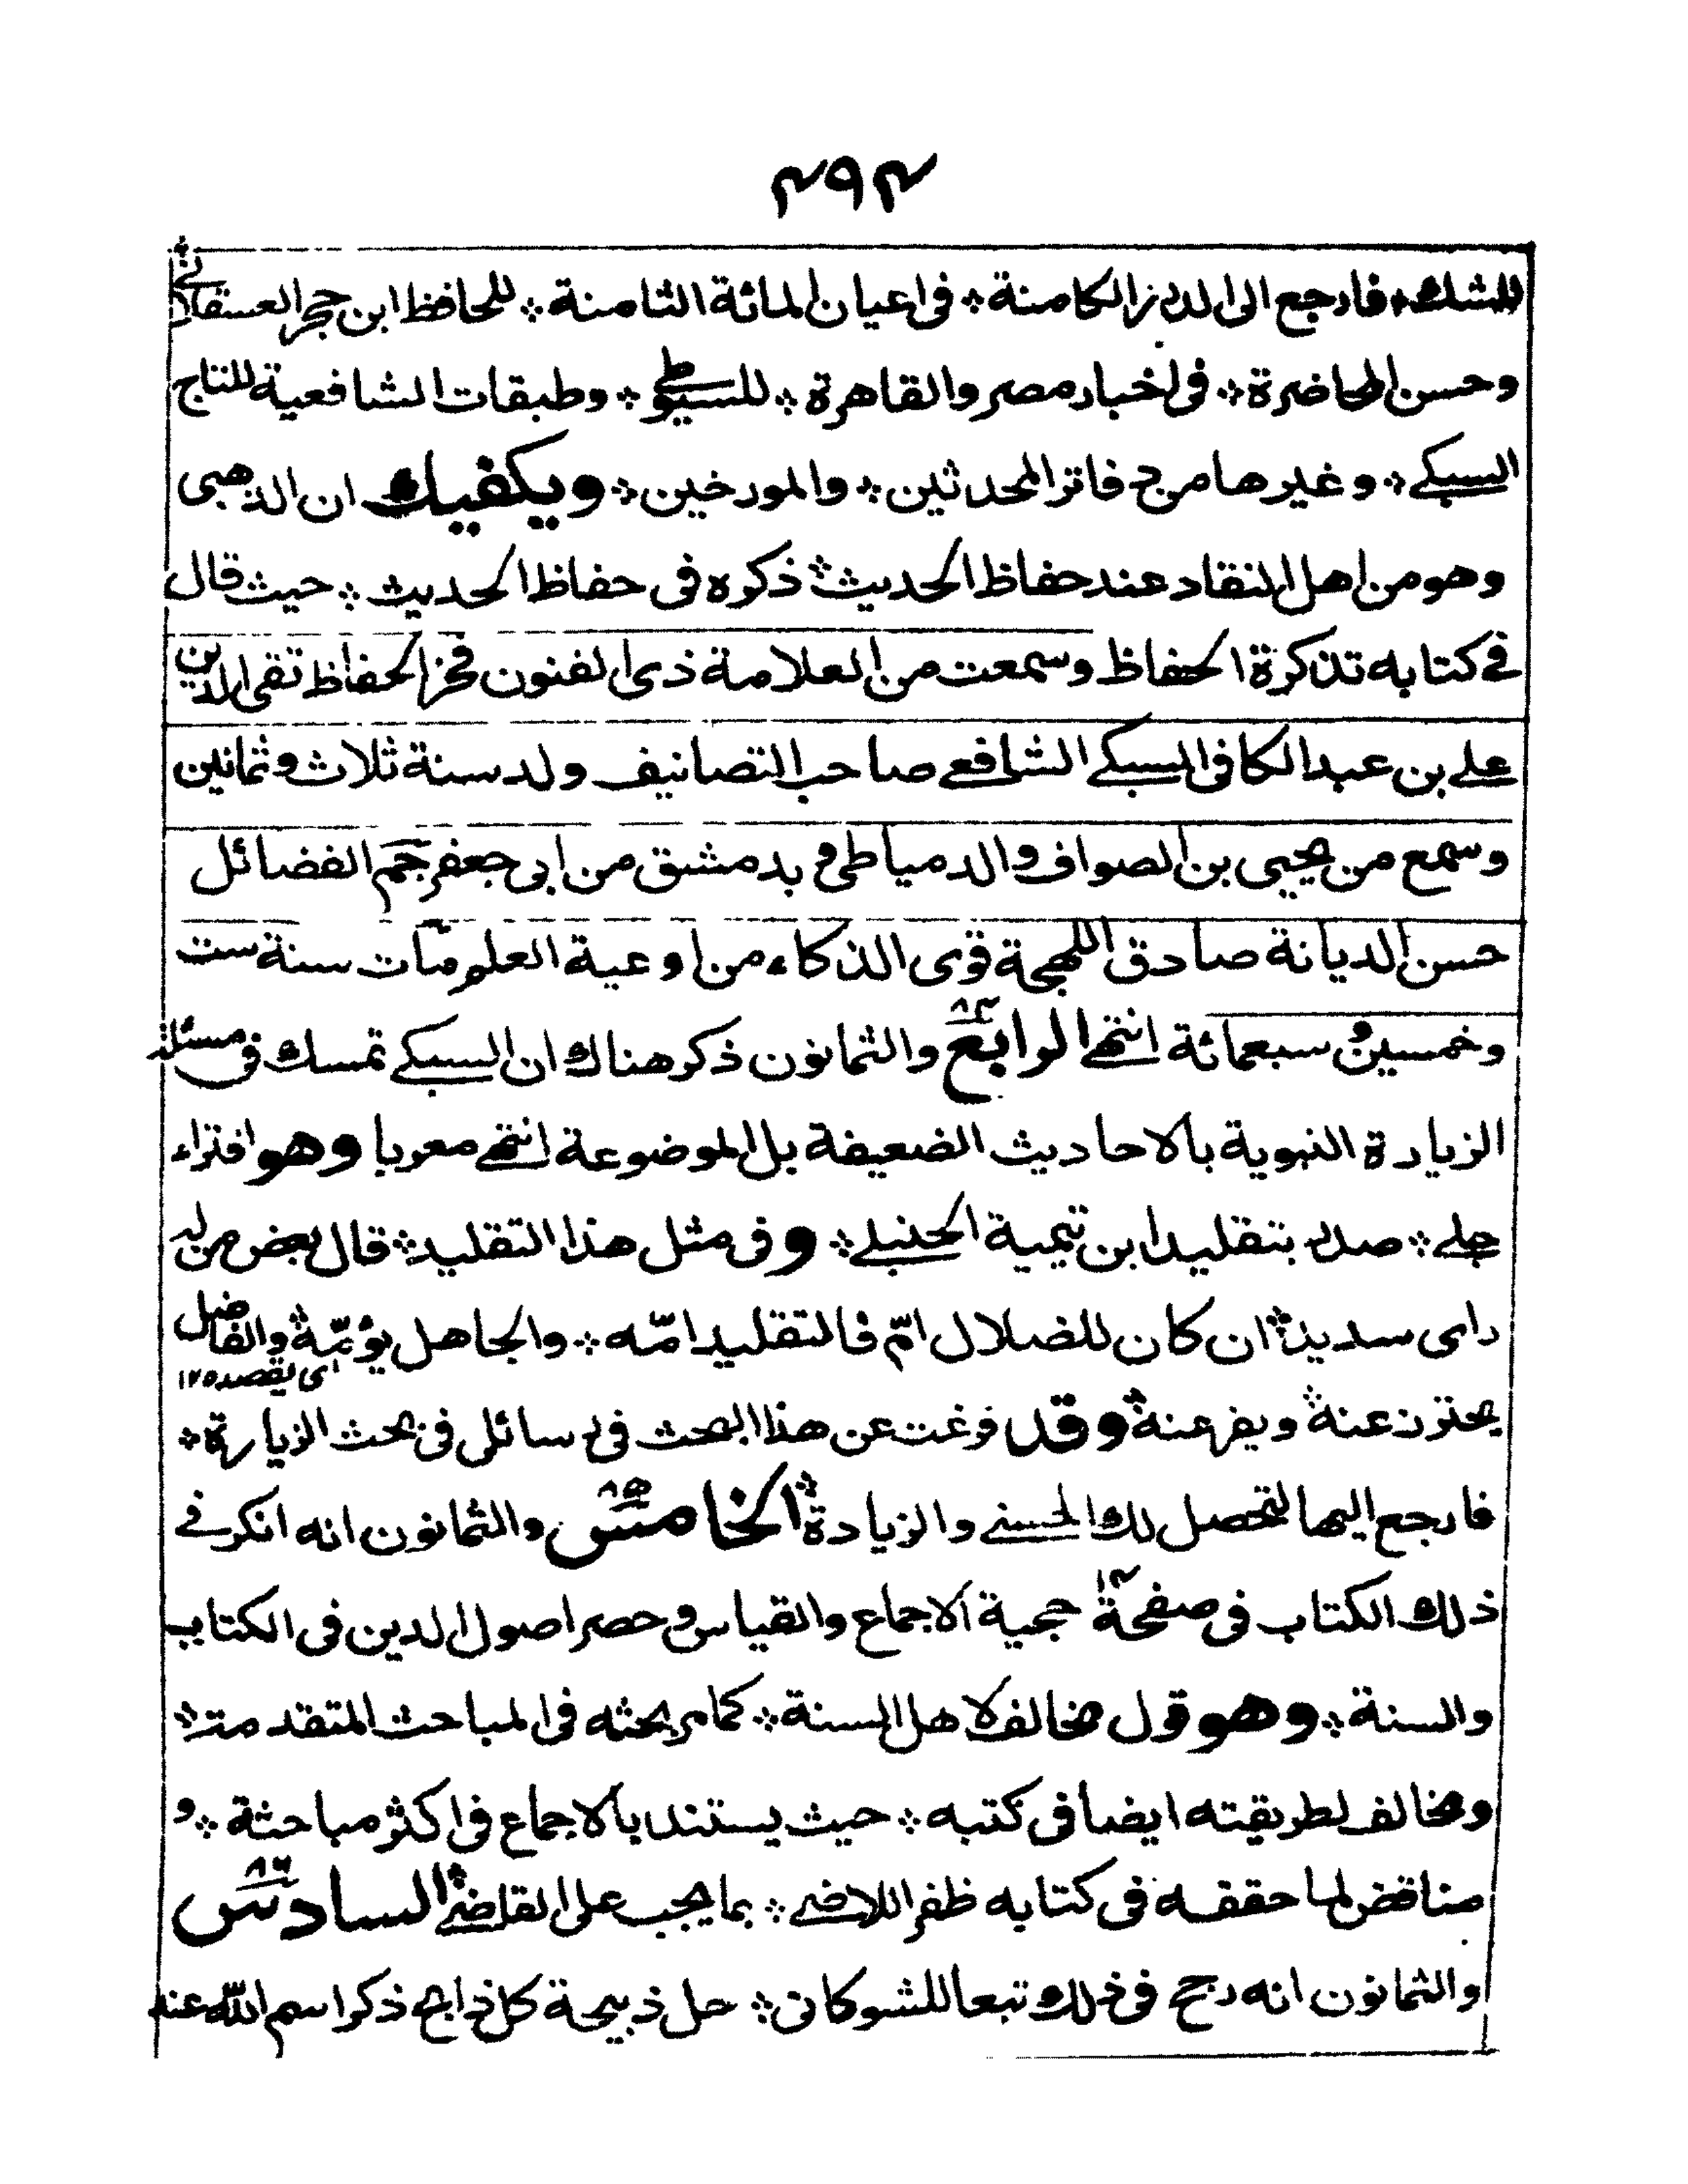 ٢٩٢
للشك ؞ فارجع الى الدرر الكامنة ؞ فى اعيان المائة الثامنة ؞ للحافظ ابن حجر العسقلانى
وحسن المحاضرة ؞ فى اخبار مصر والقاهرة ؞ للسيوطى ؞ وطبقات الشافعية للتاج
السبكى ؞ وغيرها من دفاتر المحدثين ؞ والمورخين ؞ ويكفيك ان الذهبى
وهو من اهل النقاد عند حفاظ الحديث ؞ ذكره فى حفاظ الحديث ؞ حيث قال
فى كتابه تذكرة الحفاظ وسمعت من العلامة ذى الفنون فخر الحفاظ تقى الدين
على بن عبد الكافى السبكى الشافعى صاحب التصانيف ولد سنة ثلاث وثمانين
وسمع من يحيى بن الصواف والدمياطى و بدمشق من ابى جعفر جم الفضائل
حسن الديانة صادق اللهجة قوى الذكاء من اوعية العلوم مات سنة ست
وخمسين و سبعمائة انتهى الرابع ٨٤ والثمانون ذكر هناك ان السبكى تمسك فى مسئلة
الزيارة النبوية بالاحاديث الضعيفة بل الموضوعة انتهى معربا وهو افتراء
جلى ؞ صدر بتقليد ابن تيمية الحنبلى ؞ وفى مثل هذا التقليد ؞ قال بعض من له
راى سديد ؞ ان كان للضلال امّ فالتقليد امّه ؞ والجاهل يؤمّه ؞ والفاضل
اى يقصده ١٢
يحترز عنه ؞ ويفر عنه ؞ وقد فرغت عن هذا البحث فى رسائلى فى بحث الزيارة ؞
فارجع اليها لتحصل لك الحسنى والزيادة ؞ الخامس ٨٥ والثمانون انه انكر فى
ذلك الكتاب فى صفحة ١٢ حجية الاجماع والقياس و حصر اصول الدين فى الكتاب
والسنة ؞ وهو قول مخالف لاهل السنة ؞ كما مر بحثه فى المباحث المتقدمة ؞
ومخالف لطريقته ايضا فى كتبه ؞ حيث يستند بالاجماع فى اكثر مباحثه ؞ و
مناقض لما حققه فى كتابه ظفر اللاضى ؞ بما يجب على القاضى ؞ السادس ٨٦
والثمانون انه رجح فى ذلك تبعا للشوكانى ؞ حل ذبيحة كل ذابح ذكر اسم الله عند